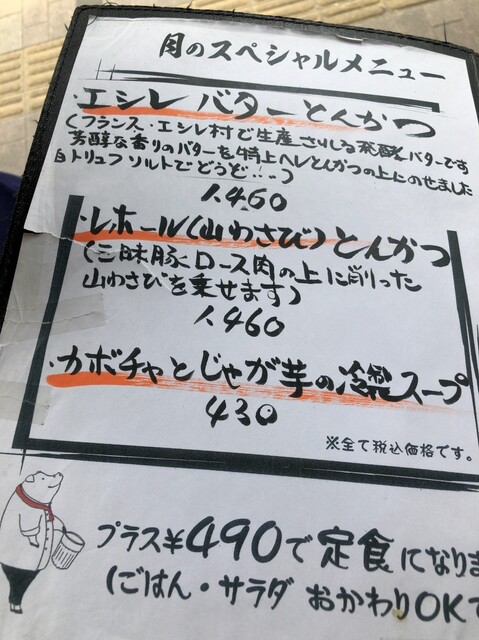 月のスペシャルメニュー
・エシレ バターとんかつ
(フランス・エシレ村で生産される発酵バターです
芳醇な香りのバターを特上ヘレとんかつの上にのせました
白トリュフソルトでどうぞ・・・)
1,460
・レホール(山わさび)とんかつ
(三味豚ロース肉の上に削った
山わさびを乗せます)
1,460
・カボチャとじゃが芋の冷製スープ
430
※全て税込価格です。
プラス¥490で定食になりま
(ごはん・サラダ おかわりOKで